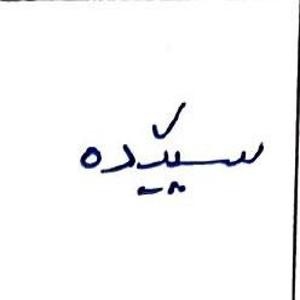 سپیده